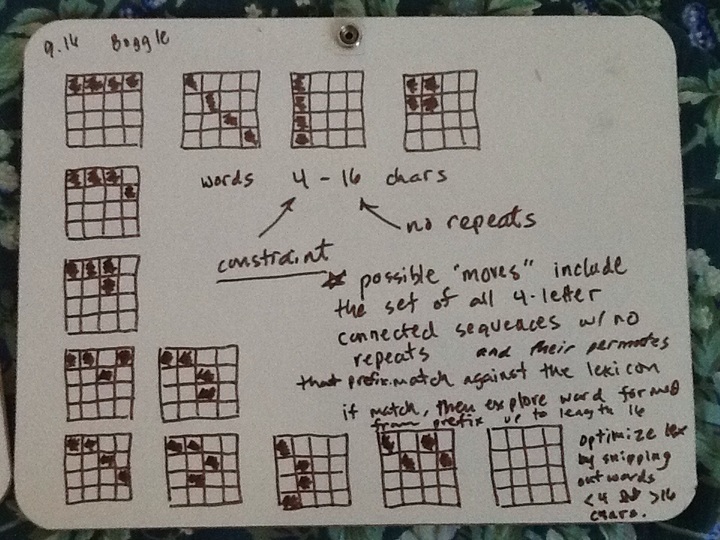 9.16 Boggle
words 4 - 16 chars
no repeats
constraint
possible "moves" include
the set of all 4-letter
connected sequences w/ no
repeats and their permutes
that prefix match against the lexicon
if match, then explore word formed
from prefix up to length 16
optimize lex
by snipping
out words
<4 >16
chars.